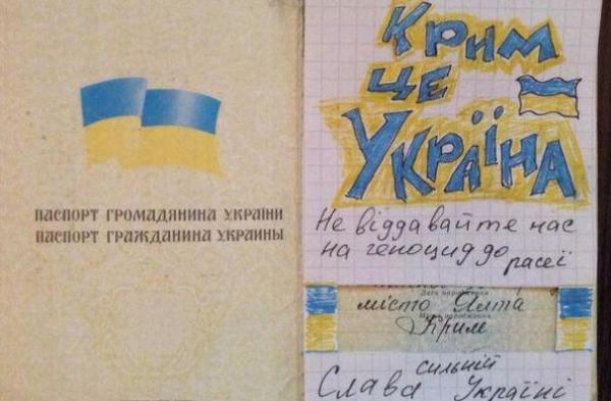 ПАСПОРТ ГРОМАДЯНИНА УКРАЇНИ
ПАСПОРТ ГРАЖДАНИНА УКРАИНЫ
Крим
ЦЕ
УКРАЇНА
Не віддавайте нас
на геноцид до расеї
місто Ялта
Крим
сильній
Слава Україні